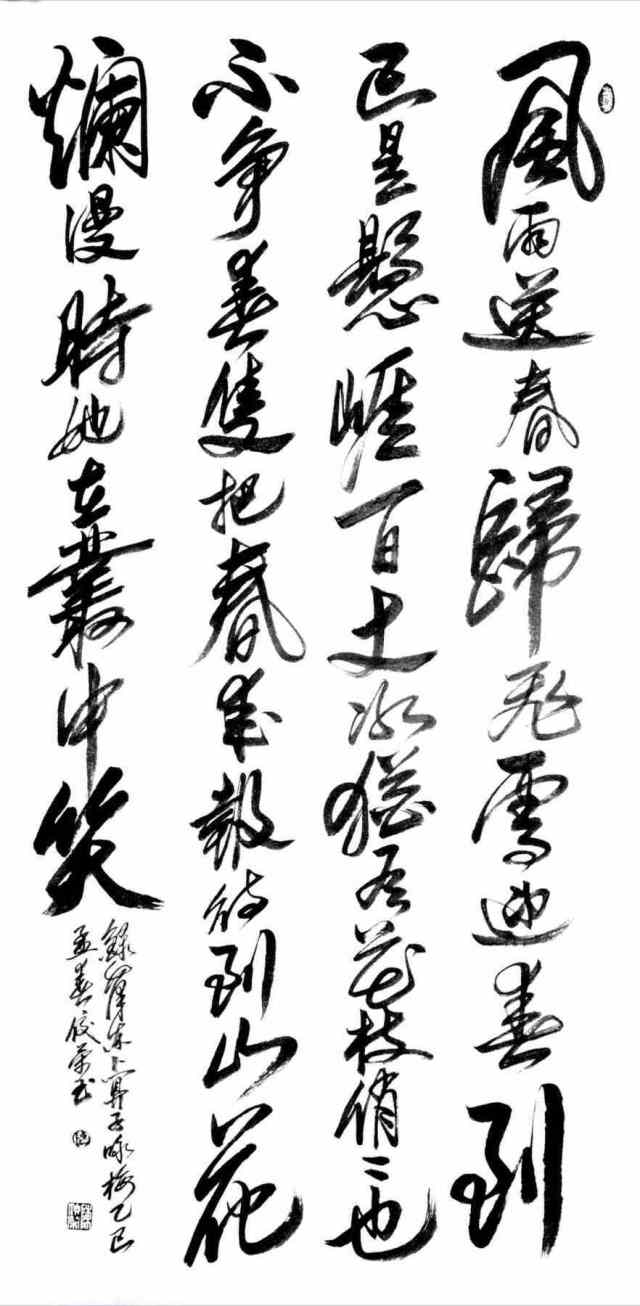 風雨送春歸飛雪迎春到
已是懸崖百丈冰猶有花枝俏〻也
不争春隻把春來報待到山花
爛漫時她在叢中笑
錄澤東卜算子咏梅乙巳
孟春榮書